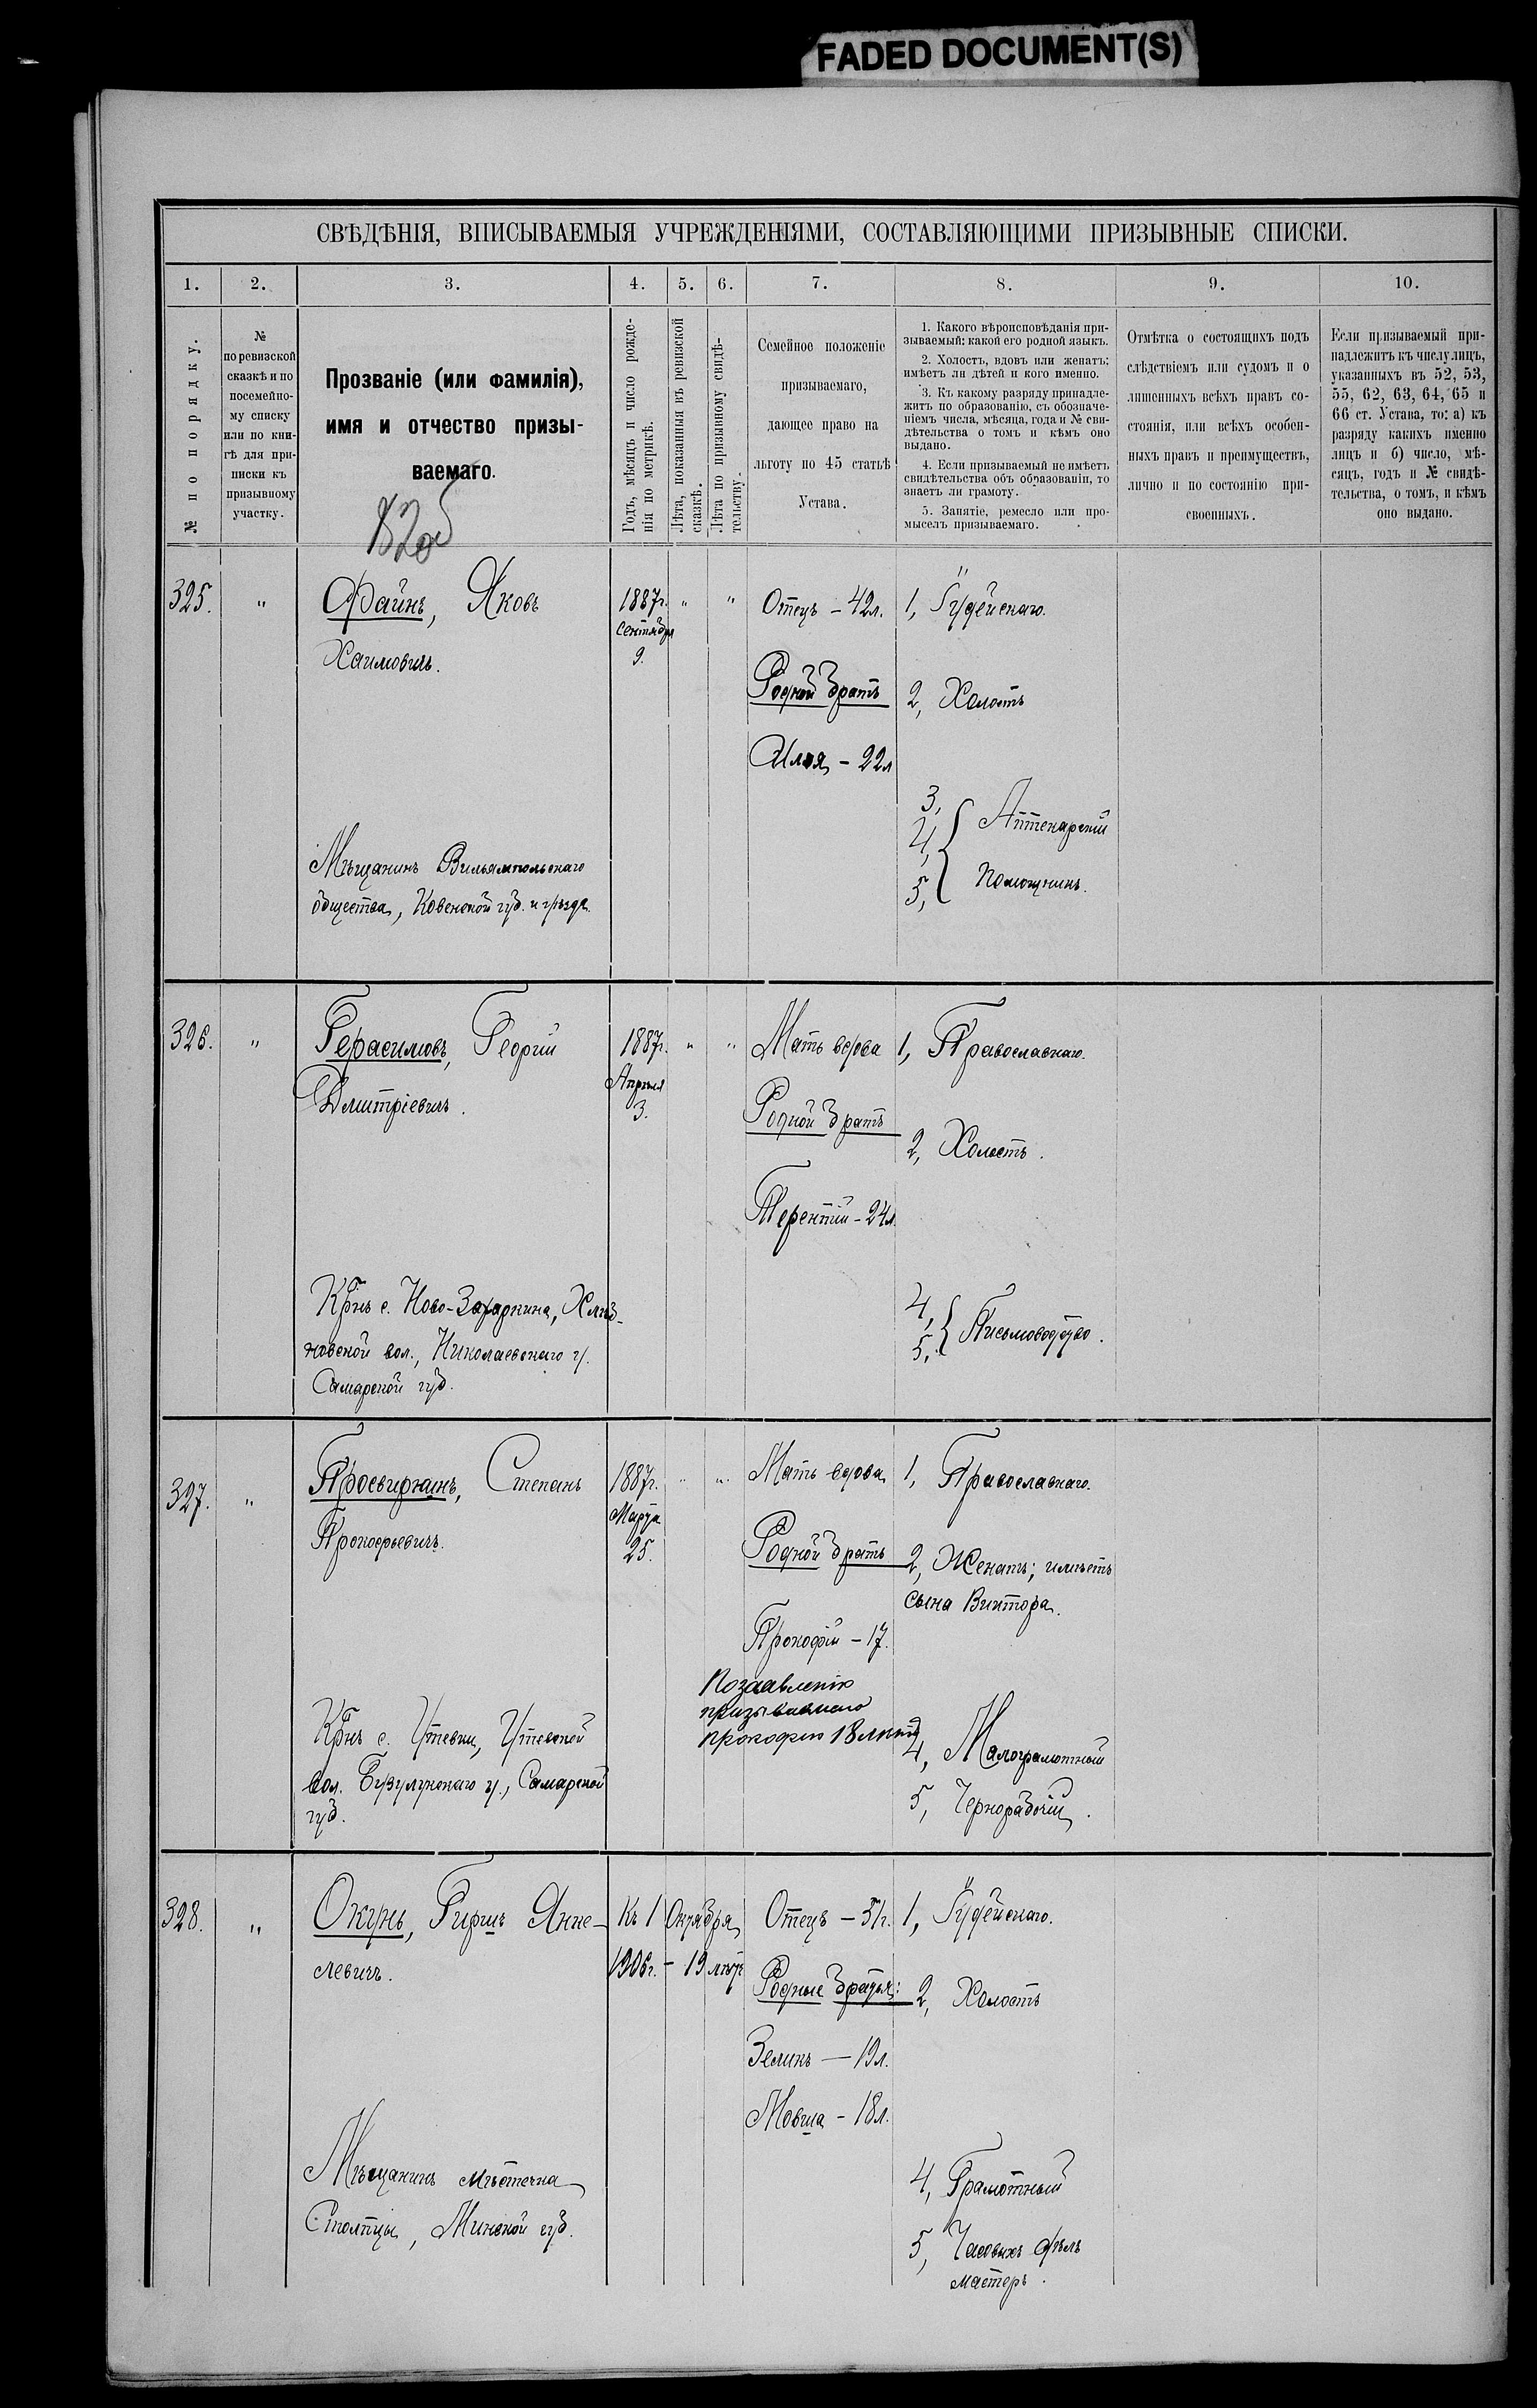 FADED DOCUMENT(S)
СВѢДѢНІЯ, ВПИСЫВАЕМЫЯ УЧРЕЖДЕНІЯМИ, СОСТАВЛЯЮЩИМИ ПРИЗЫВНЫЕ СПИСКИ.
1. 2. 3. 4. 5. 6. 7. 8. 9. 10.
№ по порядку.
№
по ревизской
сказкѣ и по
посемейно-
му списку
или по кни-
гѣ для при-
писки къ
призывному
участку.
Прозваніе (или фамилія),
имя и отчество призы-
ваемаго.
Годъ, мѣсяцъ и число рожде-
нія по метрикѣ.
Лѣта, показанныя въ ревизской
сказкѣ.
Лѣта по призывному свидѣ-
тельству.
Семейное положеніе
призываемаго,
дающее право на
льготу по 45 статьѣ
Устава.
1. Какого вѣроисповѣданія при-
зываемый: какой его родной языкъ.
2. Холостъ, вдовъ или женатъ:
имѣетъ ли дѣтей и кого именно.
3. Къ какому разряду принадле-
житъ по образованію, съ обозначе-
ніемъ числа, мѣсяца, года и № сви-
дѣтельства о томъ и кѣмъ оно
выдано.
4. Если призываемый не имѣетъ
свидѣтельства объ образованіи, то
знаетъ ли грамоту.
5. Занятіе, ремесло или про-
мыселъ призываемаго.
Отмѣтка о состоящихъ подъ
слѣдствіемъ или судомъ и о
лишенныхъ всѣхъ правъ со-
стоянія, или всѣхъ особен-
ныхъ правъ и преимуществъ,
лично и по состоянію при-
своенныхъ.
Если призываемый при-
надлежитъ къ числу лицъ,
указанныхъ въ 52, 53,
55, 62, 63, 64, 65 и
66 ст. Устава, то: а) къ
разряду какихъ именно
лицъ и б) число, мѣ-
сяцъ, годъ и № свидѣ-
тельства, о томъ, и кѣмъ
оно выдано.
325. "
Файнъ, Яковъ
Хаимовичъ.
Мѣщанинъ Вильямпольскаго
общества, Ковенской губ. и уѣзда.
1887г. " "
Сентября
9.
Отецъ - 42л.
Родной братъ
Илья - 22л
1, Іудейскаго.
2, Холостъ
3,
4,
5,
Аптекарскій
помощникъ.
326. "
Герасимовъ, Георгій
Дмитріевичъ.
Крнъ с. Ново-Захаркина,
вол., Николаевскаго у.
Самарской губ.
1887г. " "
Апрѣля
3.
Мать вдова
Родной братъ
Терентій - 24л.
1, Православнаго.
2, Холостъ.
4,
5,
Письмоводство.
327. "
Просвиркинъ, Степанъ
Прокофьевичъ.
Крнъ с. Утевки, Утевской
вол. Бузулукскаго у., Самарской
губ.
1887г. " "
Марта
25.
Мать вдова
Родной братъ
Прокофій - 17.
По заявленію
призываемаго
Прокофію 18 лѣтъ
1, Православнаго.
2, Женатъ; имѣетъ
сына Виктора.
4, Малограмотный
5, Чернорабочій.
328. "
Окунь, Гиршъ Янке-
левичъ.
Мѣщанинъ мѣстечка
Столпцы, Минской губ.
Къ 1 Октября
1906г. - 19 лѣтъ
Отецъ - 51г.
Родные братья:
Зеликъ - 19л.
Мовша - 18л.
1, Іудейскаго.
2, Холостъ
4, Грамотный
5, Часовыхъ дѣлъ
мастеръ.